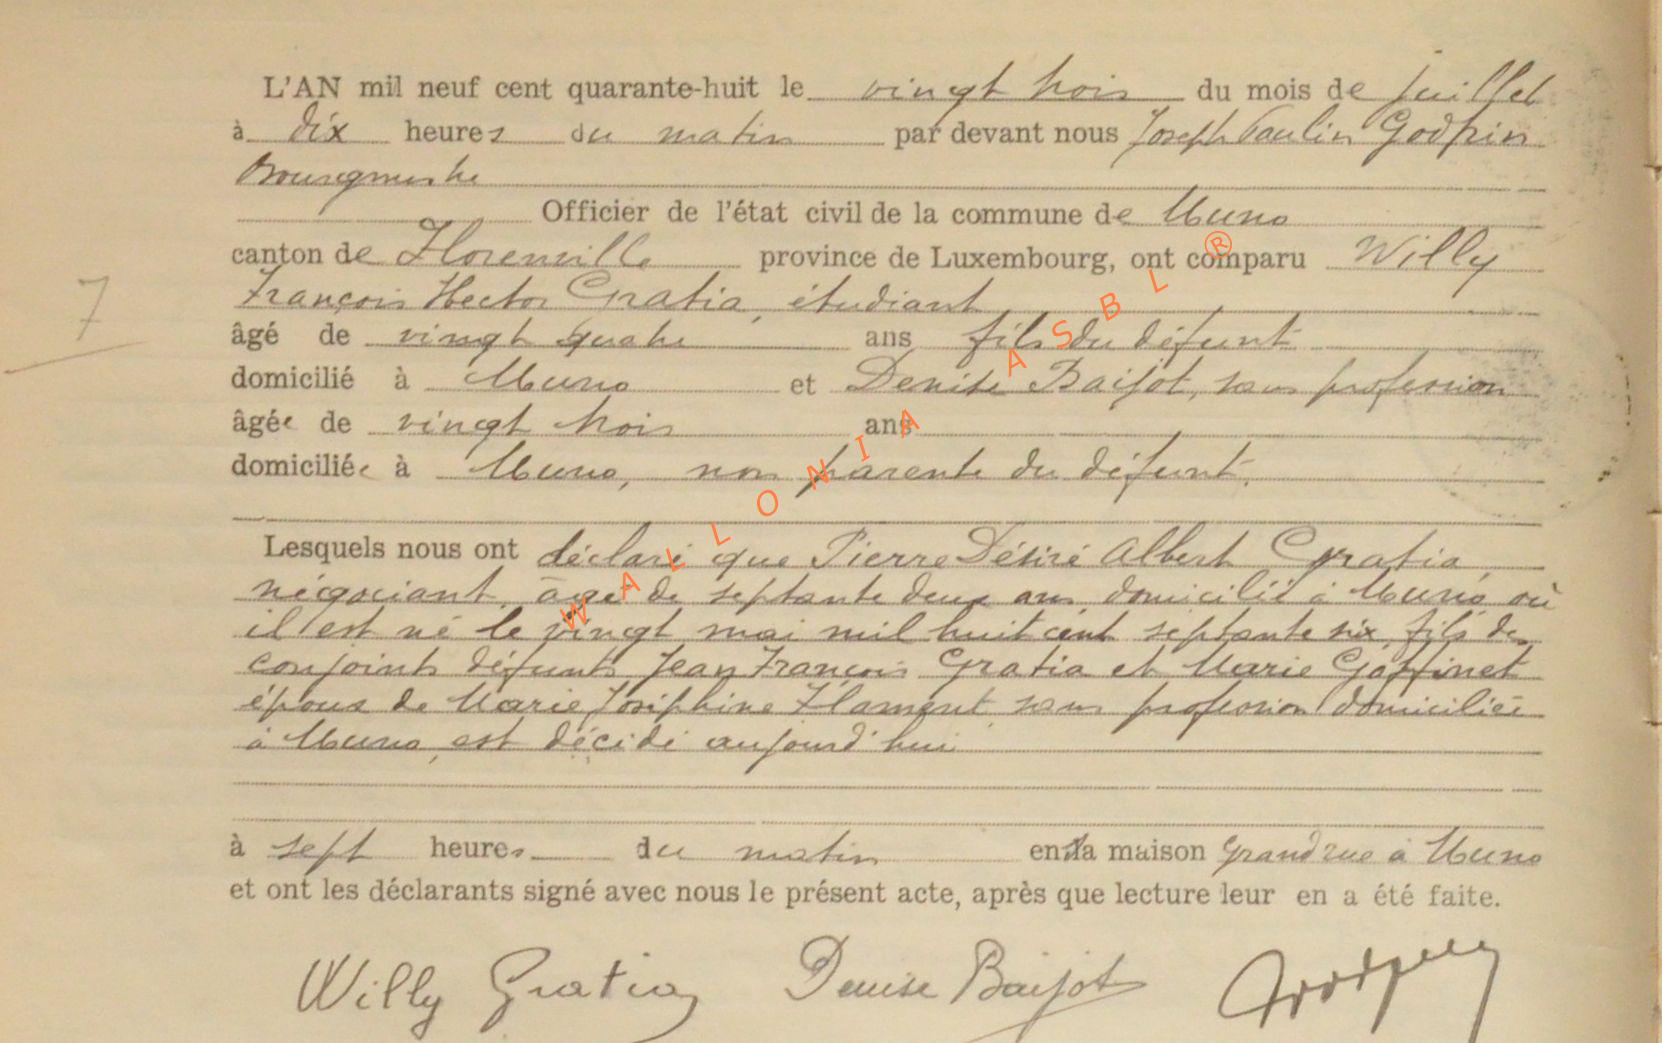 L'AN mil neuf cent quarante-huit le vingt trois du mois de juillet
à dix heures du matin par devant nous Joseph Paulin Godfrin
Bourgmestre
Officier de l'état civil de la commune de Muno
canton de Florenville province de Luxembourg, ont comparu Willy
François Hector Gratia, étudiant
âgé de vingt quatre ans fils du défunt
domicilié à Muno et Denise Baijot, sans profession
âgée de vingt trois ans
domiciliée à Muno, non parente du défunt.
Lesquels nous ont déclaré que Pierre Désiré Albert Gratia,
négociant, âgé de septante deux ans, domicilié à Muno, où
il est né le vingt mai mil huit cent septante six, fils des
conjoints défunts Jean François Gratia et Marie Goffinet
époux de Marie Joséphine Flament, sans profession domiciliée
à Muno, est décédé aujourd'hui
à sept heures du matin en la maison Grand rue à Muno
et ont les déclarants signé avec nous le présent acte, après que lecture leur en a été faite.
Willy Gratia Denise Baijot
7
WALLONIA ASBL ®